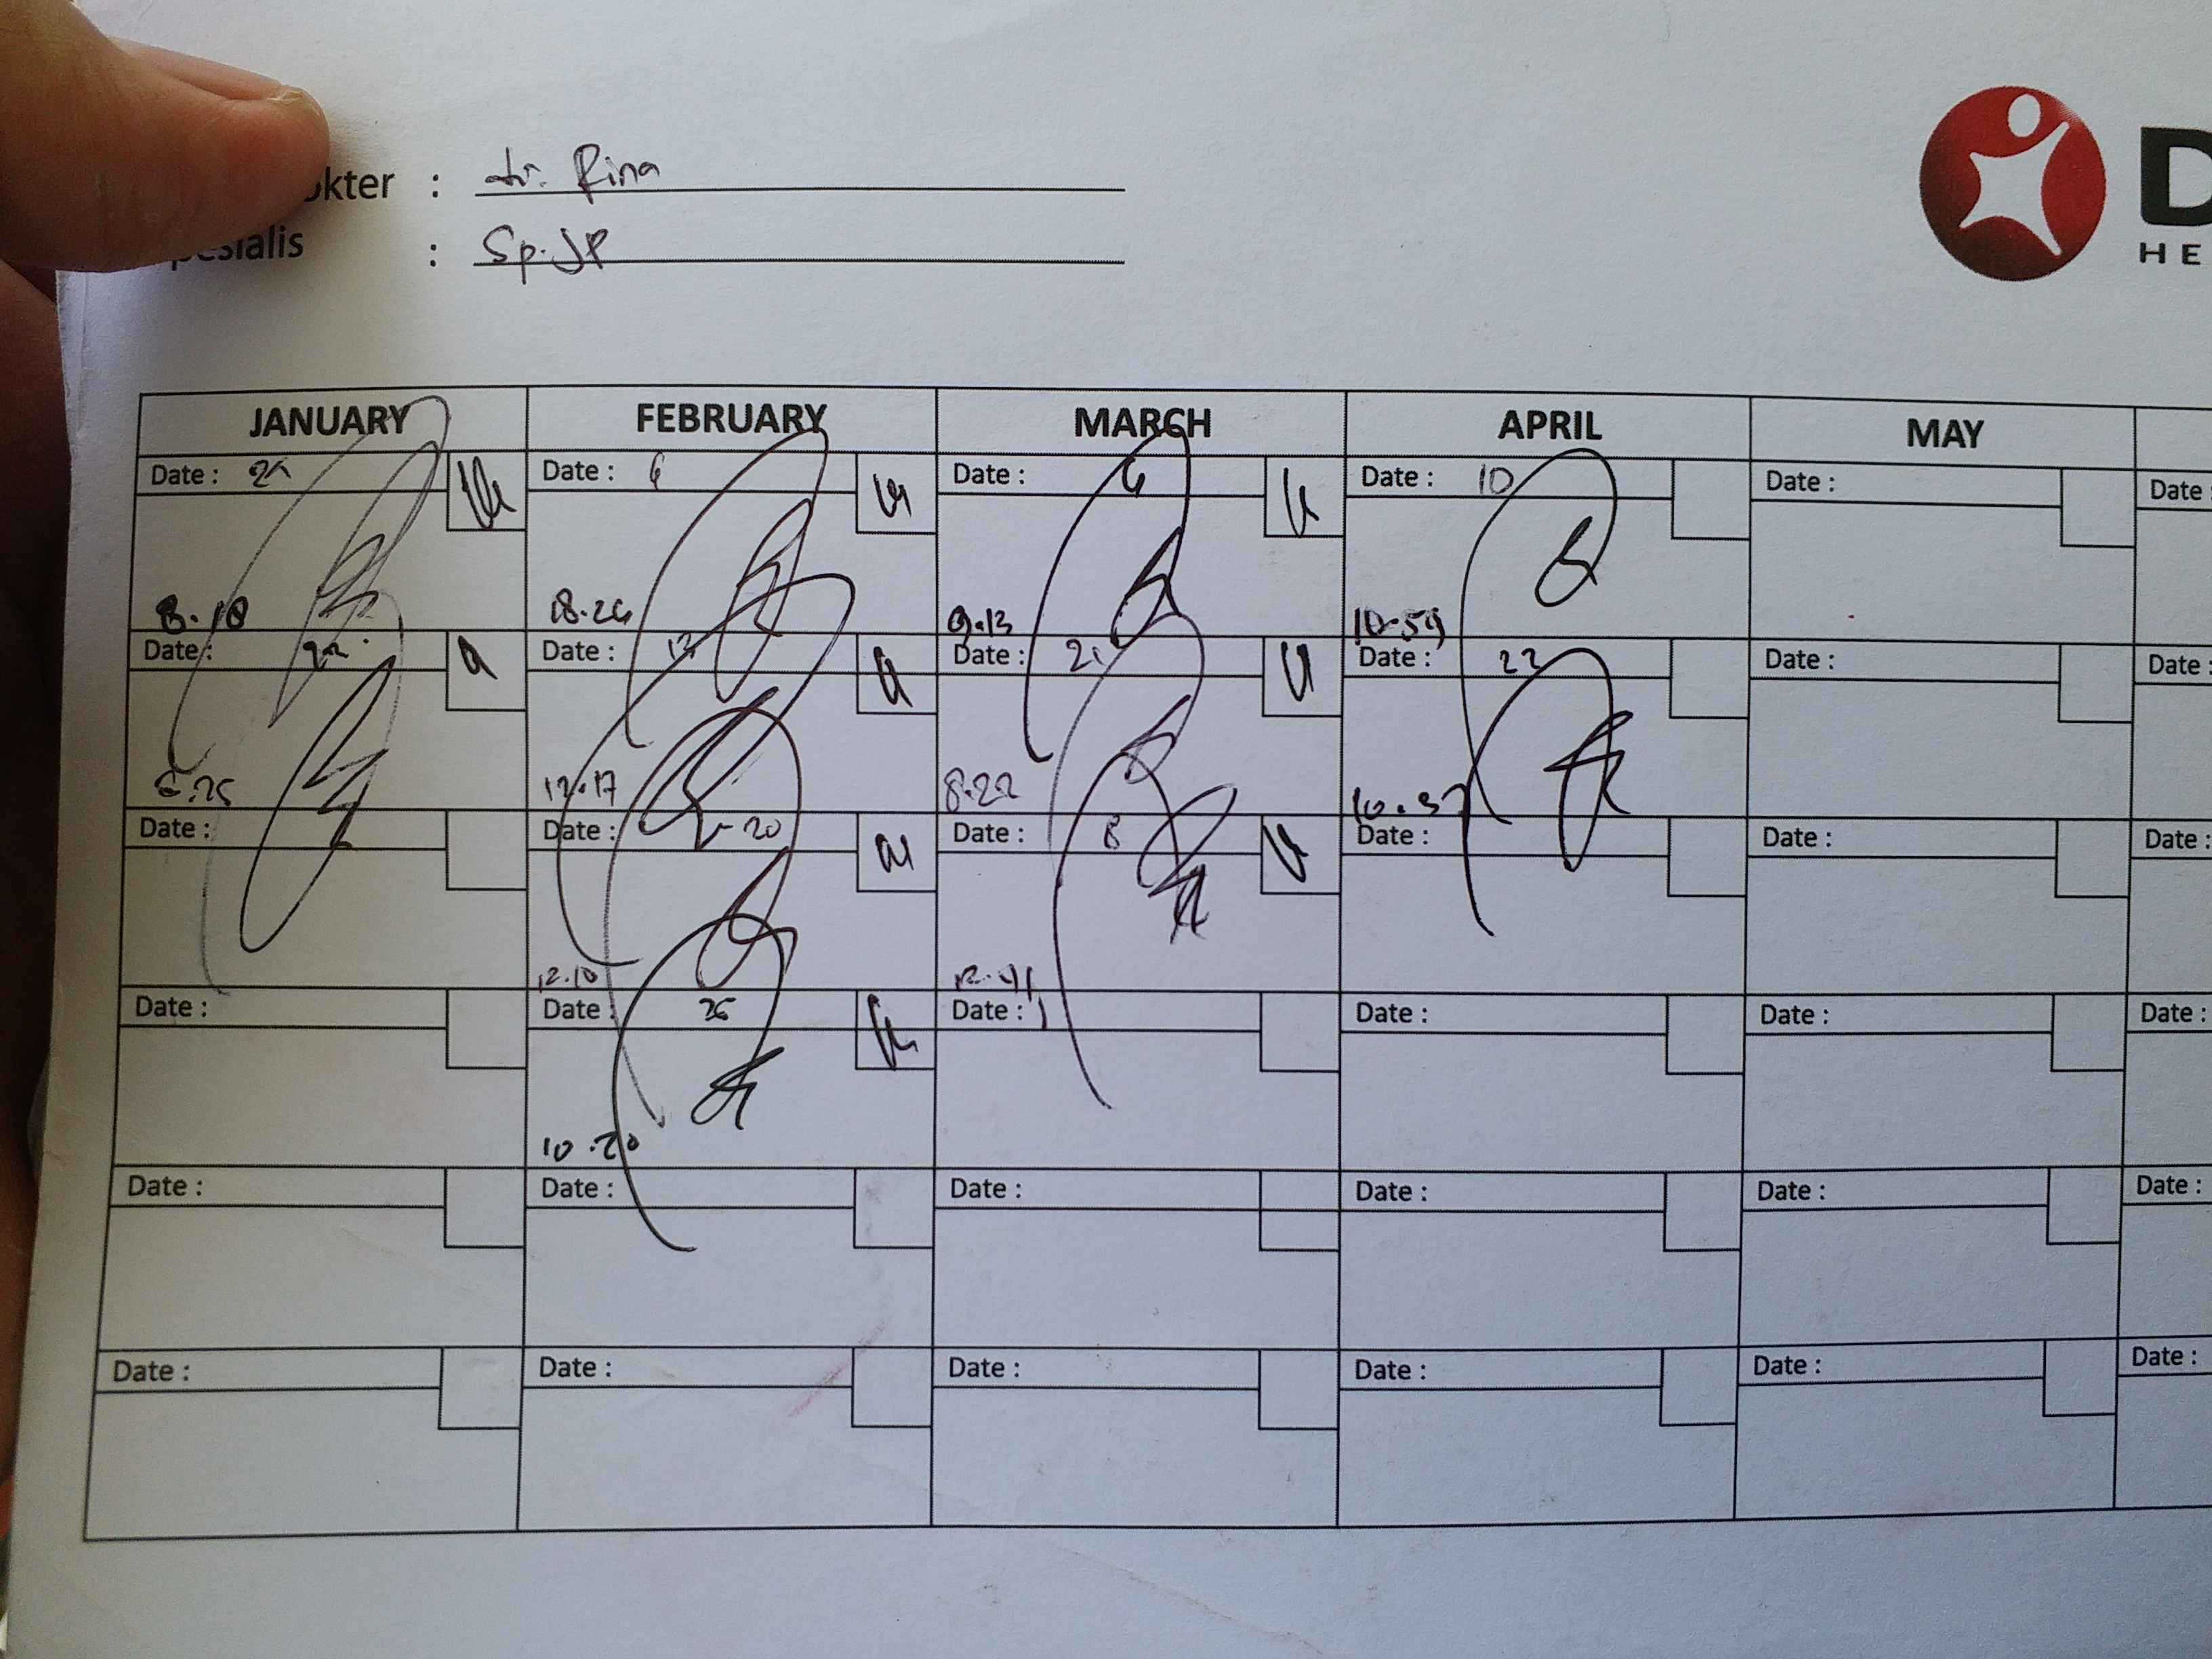 okter : dr. Rina
pesialis : Sp.JP
D
HE
JANUARY FEBRUARY MARCH APRIL MAY
Date : Date : 6 Date : 6 Date : 10 Date : Date
8.18 8.26 9.13 10.59
Date : Date : 13 Date : 21 Date : 22 Date : Date :
12.17 8.22
Date : Date : 20 Date : 8 Date : Date : Date :
12.10 12.41
Date : Date : 26 Date : Date : Date : Date :
10.20
Date : Date : Date : Date : Date : Date :
Date : Date : Date : Date : Date : Date :